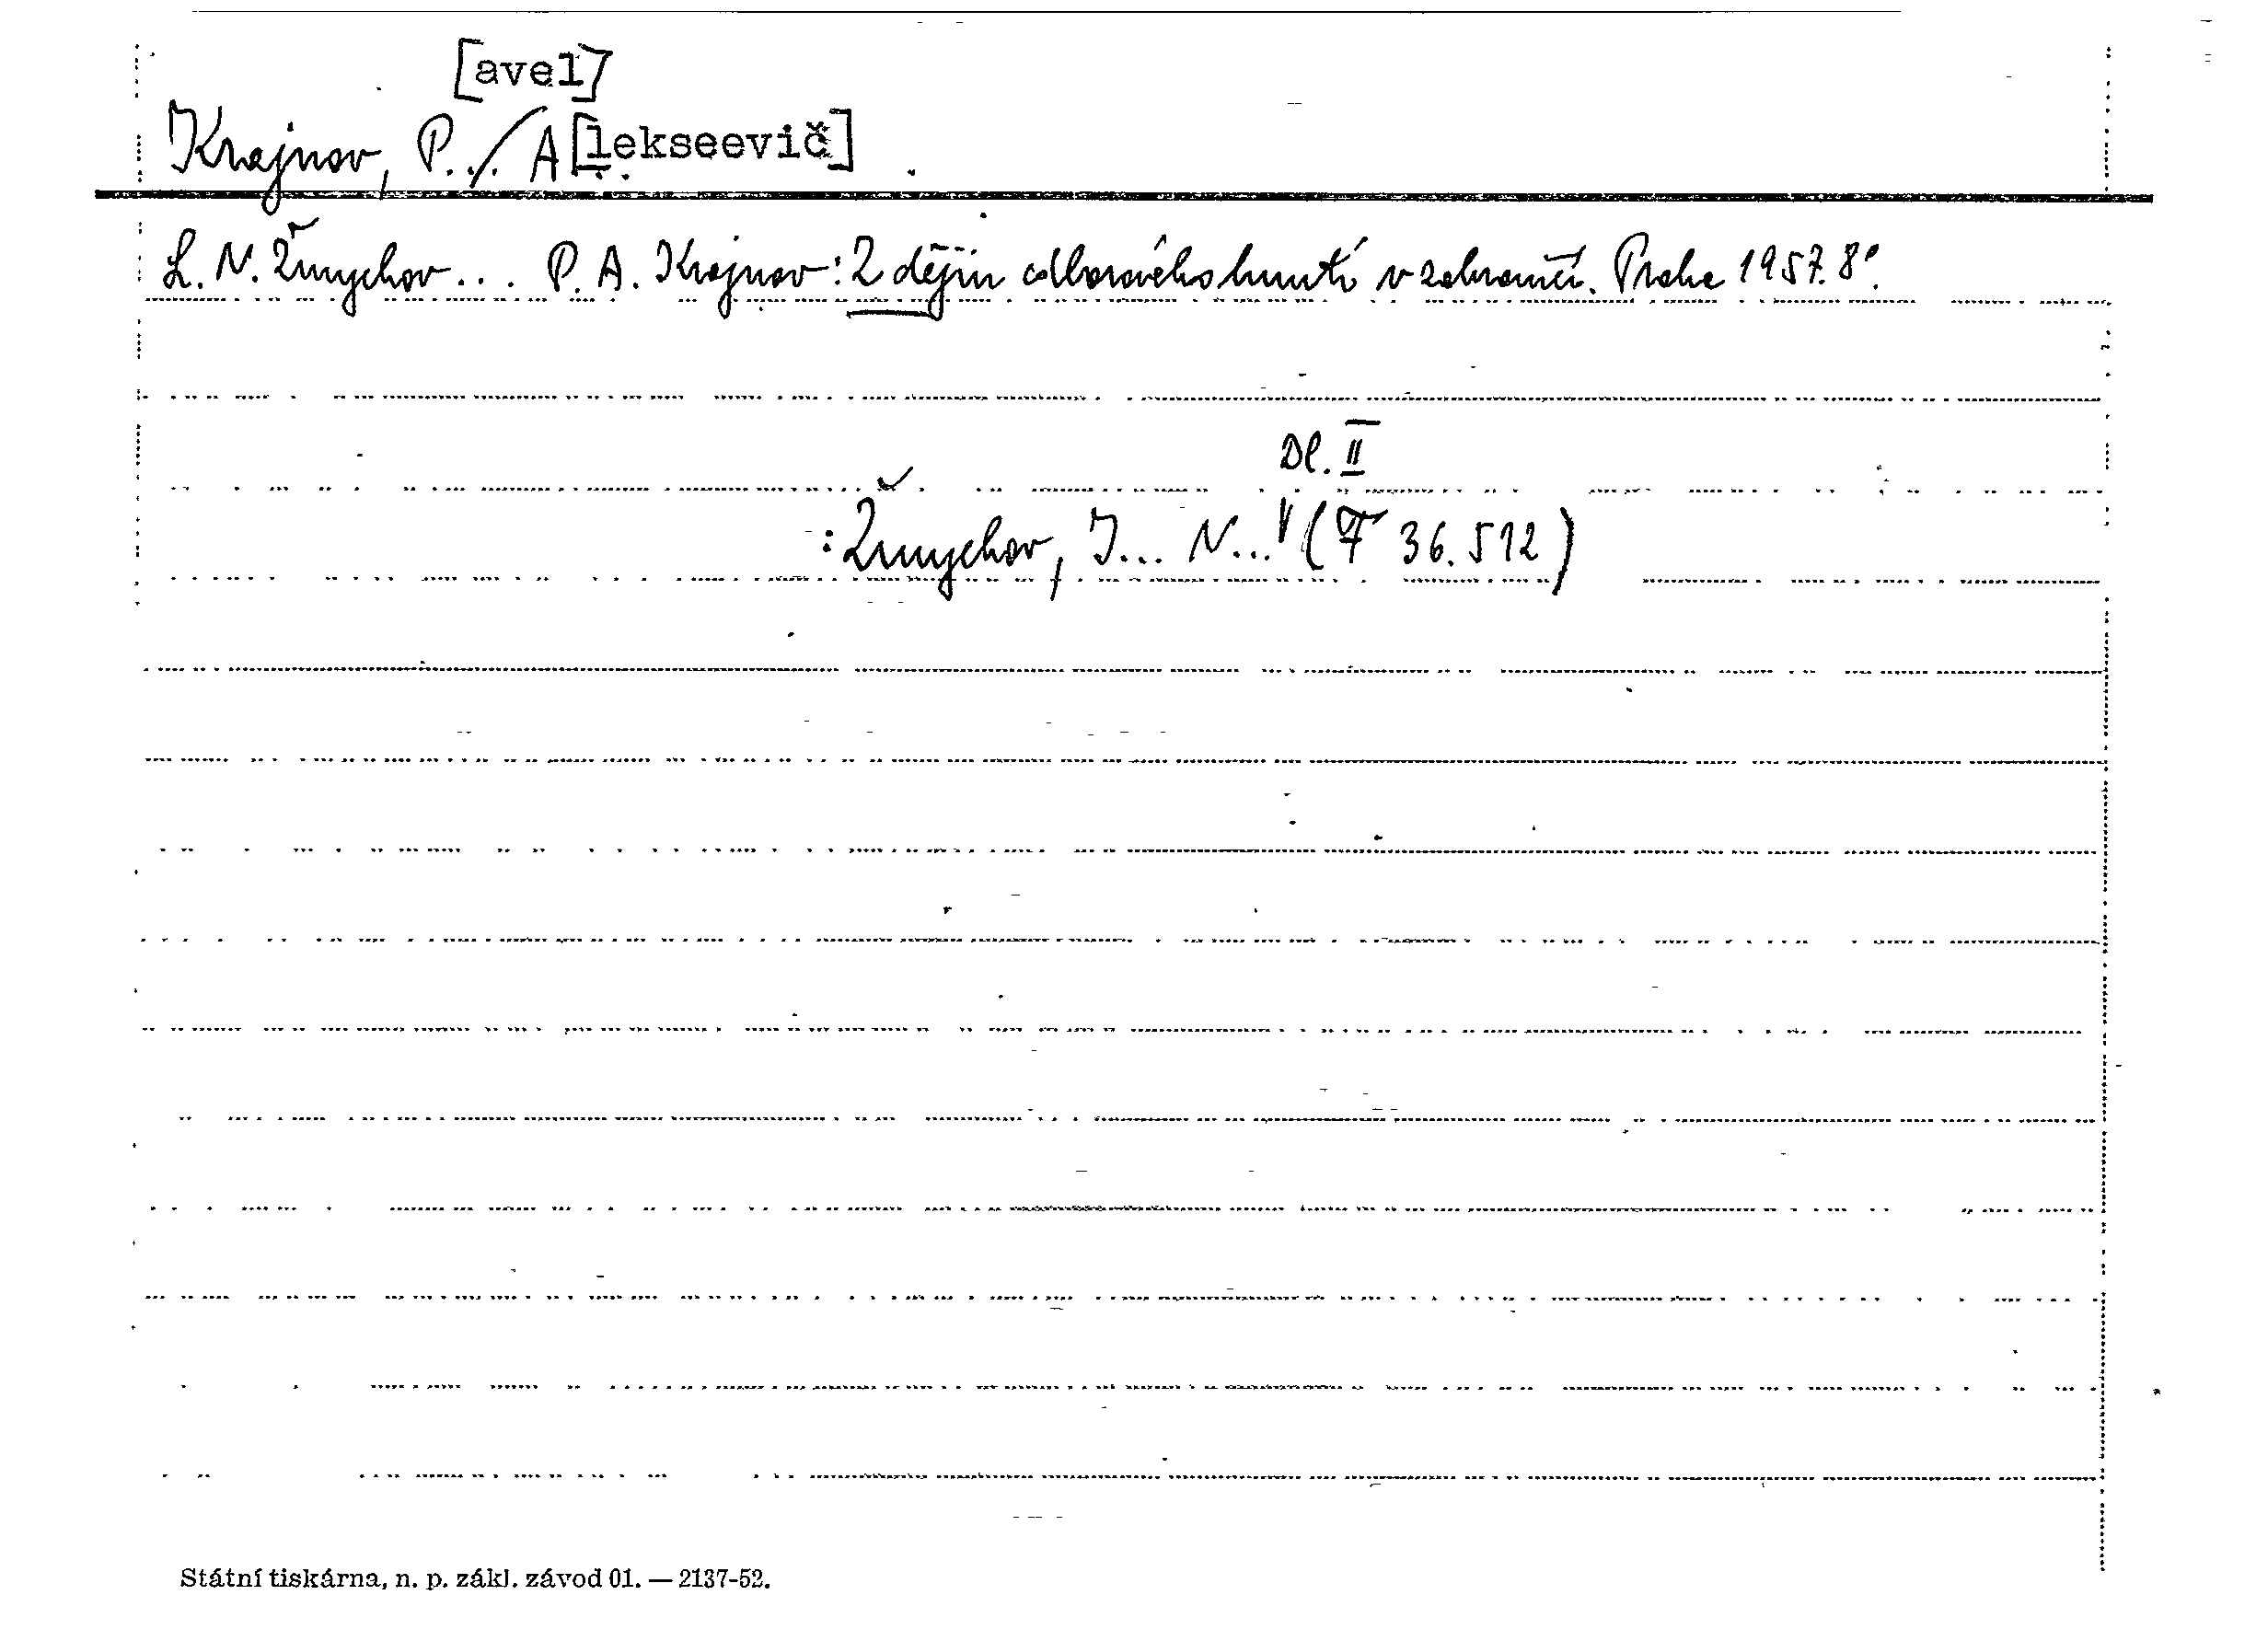 [avel]
Krajnov, P../. A[lekseevič]
L. N. Žmychov... P. A. Krajnov: Z dějin odborového hnutí v zahraničí. Praha 1957. 8°.
Dl. II
: Žmychov, I... N... (F 36.512)
Státní tiskárna, n. p. zákl. závod 01. — 2137-52.